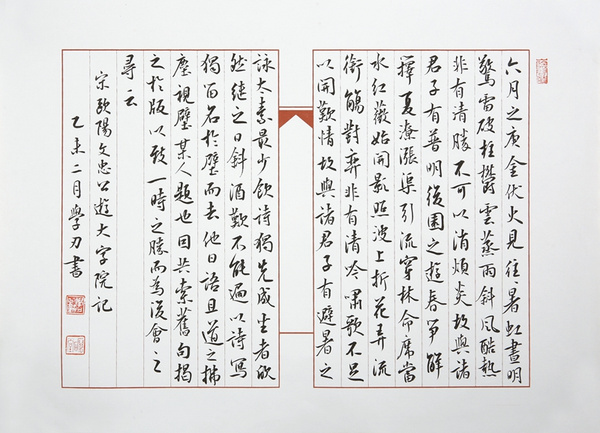 六月之庚金伏火見往暑虹晝明
驚雷破柱鬱雲蒸雨斜風酷熱
非有清勝不可以消煩炎故與諸
君子有普明後園之遊春笋解
籜夏潦漲渠引流穿林命席當
水紅薇始開影照波上折花弄流
銜觴對弈非有清吟嘯歌不足
以開歡情故與諸君子有避暑之
詠太素最少飲詩獨先成坐者欣
然繼之日斜酒歡不能遍以詩寫
獨留名於壁而去他日語且道之拂
塵視壁某人題也因共索舊句揭
之於版以致一時之勝而為後會之
尋云
宋歐陽文忠公遊大字院記
乙未二月學刀書